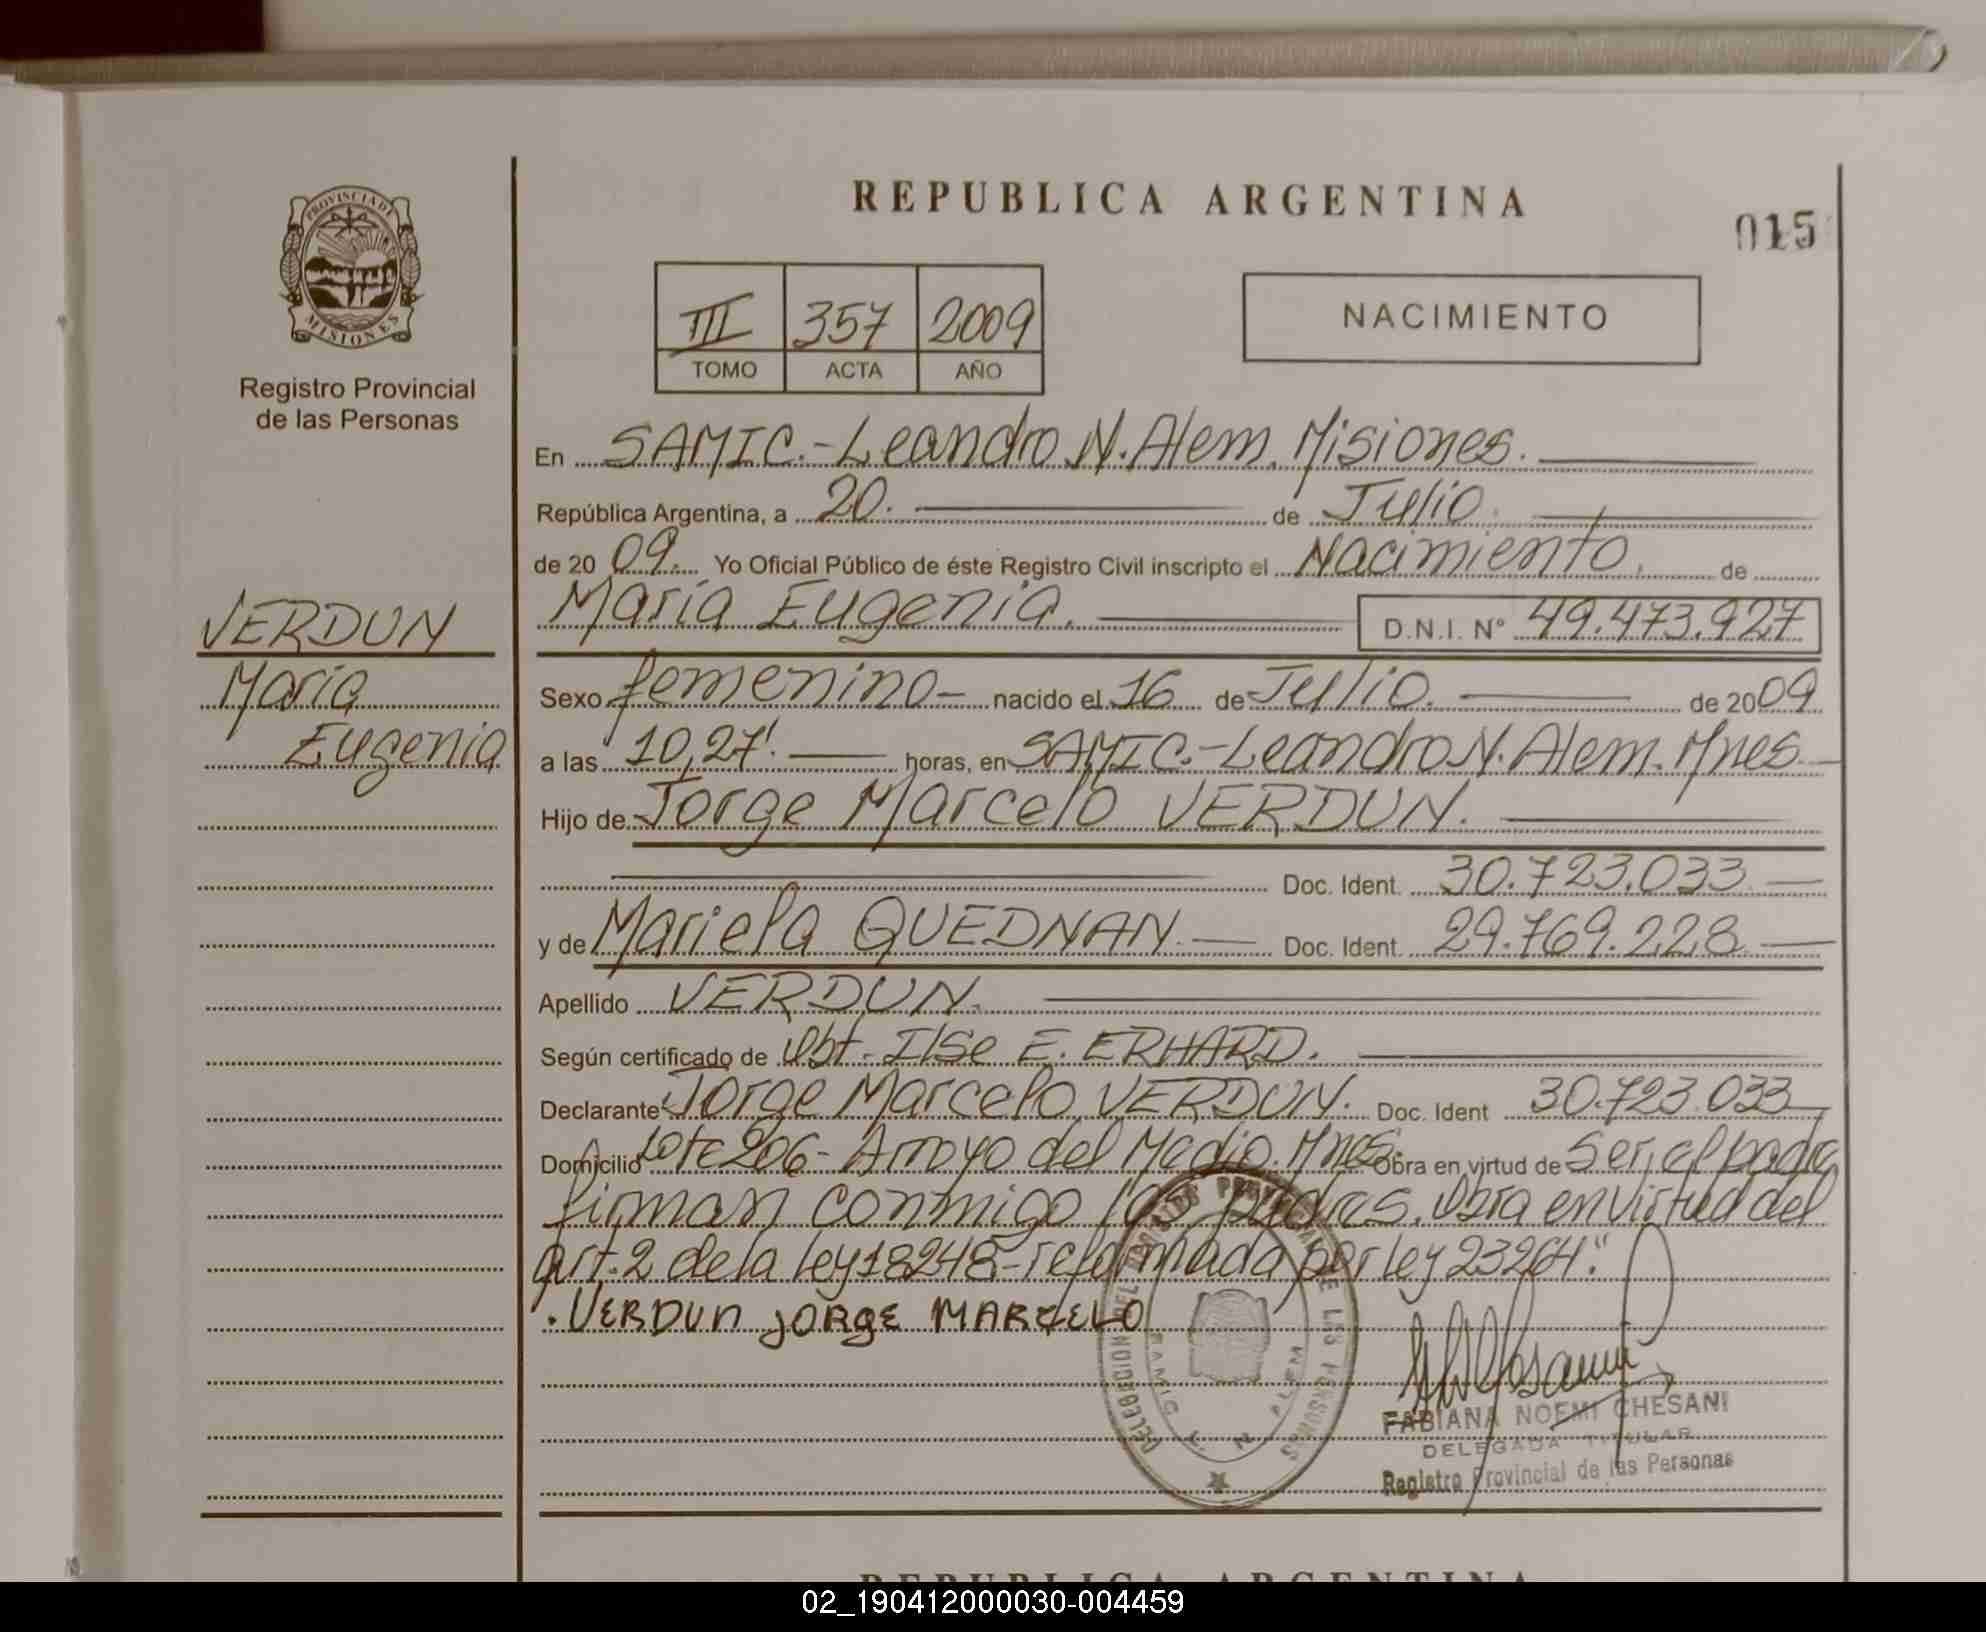 REPUBLICA ARGENTINA
015
PROVINCIA DE
MISIONES
Registro Provincial
de las Personas
III 357 2009
TOMO ACTA AÑO
NACIMIENTO
En SAMIC.-Leandro N. Alem. Misiones.
República Argentina, a 20. de Julio.
de 20 09. Yo Oficial Público de éste Registro Civil inscripto el Nacimiento. de
María Eugenia. D.N.I. Nº 49.473.927
VERDUN
María
Eugenia
Sexo femenino- nacido el 16 de Julio. de 20 09
a las 10,27'. horas, en SAMIC.-Leandro N. Alem. Mnes.
Hijo de Jorge Marcelo VERDUN.
Doc. Ident. 30.723.033
y de Mariela QUEDNAN. Doc. Ident. 29.769.228
Apellido VERDUN.
Según certificado de Obt. Ilse E. ERHARD.
Declarante Jorge Marcelo VERDUN. Doc. Ident 30.723.033
Domicilio Lote 206- Arroyo del Medio. Mnes. Obra en virtud de Ser el padre
firman conmigo los padres. Obra en virtud del
art. 2 de la Ley 18248-reformada por ley 23264."
. VERDUN JORGE MARCELO
DELEGACION DEL REGISTRO PROVINCIAL DE LAS PERSONAS
SAMIC. L. N. ALEM
FABIANA NOEMI CHESANI
DELEGADA TITULAR
Registro Provincial de las Personas
REPUBLICA ARGENTINA
02_190412000030-004459